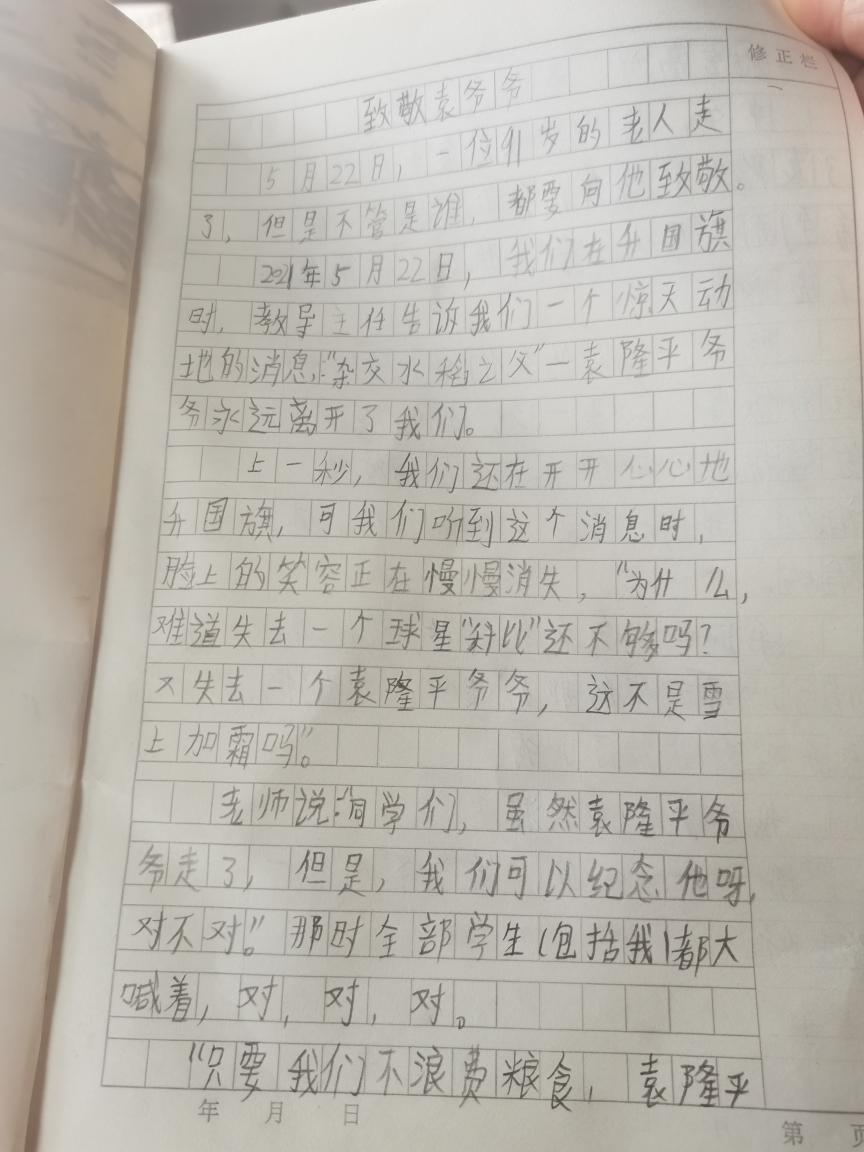 修正栏
致敬袁爷爷
5月22日，一位91岁的老人走
了，但是不管是谁，都要向他致敬。
2021年5月22日，我们在升国旗
时，教导主任告诉我们一个惊天动
地的消息，:“杂交水稻之父”—袁隆平爷
爷永远离开了我们。
上一秒，我们还在开开心心地
升国旗，可我们听到这个消息时，
脸上的笑容正在慢慢消失，“为什么，
难道失去一个球星“科比”还不够吗？
又失去一个袁隆平爷爷，这不是雪
上加霜吗”。
老师说：“同学们，虽然袁隆平爷
爷走了，但是，我们可以纪念他呀，
对不对”。那时全部学生（包括我）都大
喊着，对，对，对。
“只要我们不浪费粮食，袁隆平
年 月 日
第 页